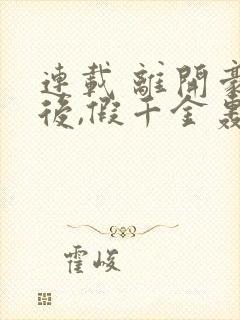 連載 離開豪
後,假千金轟
霍峻